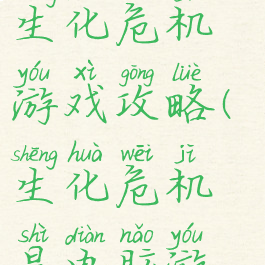 生化危机
yóu xì gōng lüè
游戏攻略(
shēng huà wēi jī
生化危机
shì diàn nǎo yóu
是电脑游